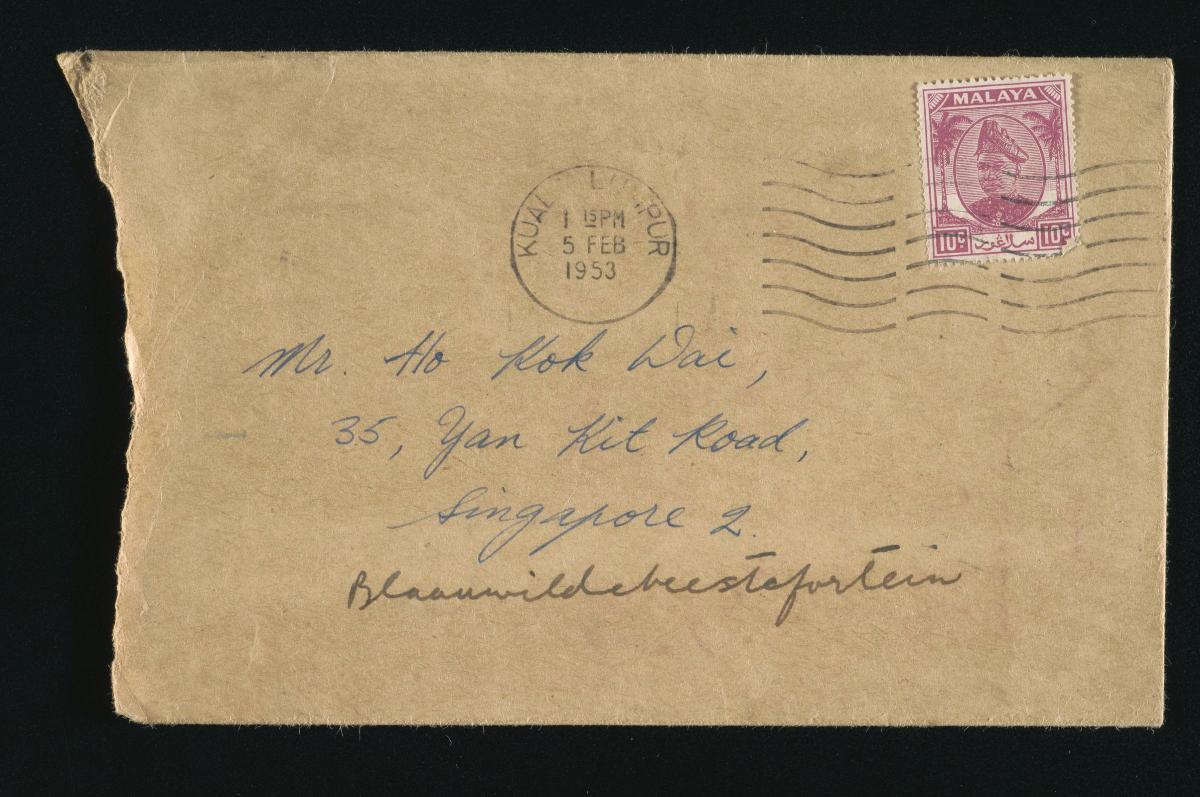 MALAYA
10c سلاڠور 10c
KUALA LUMPUR
1 15PM
5 FEB
1953
Mr. Ho Kok Wai,
35, Yan Kit Road,
Singapore 2.
Blaauwildebeestefortein